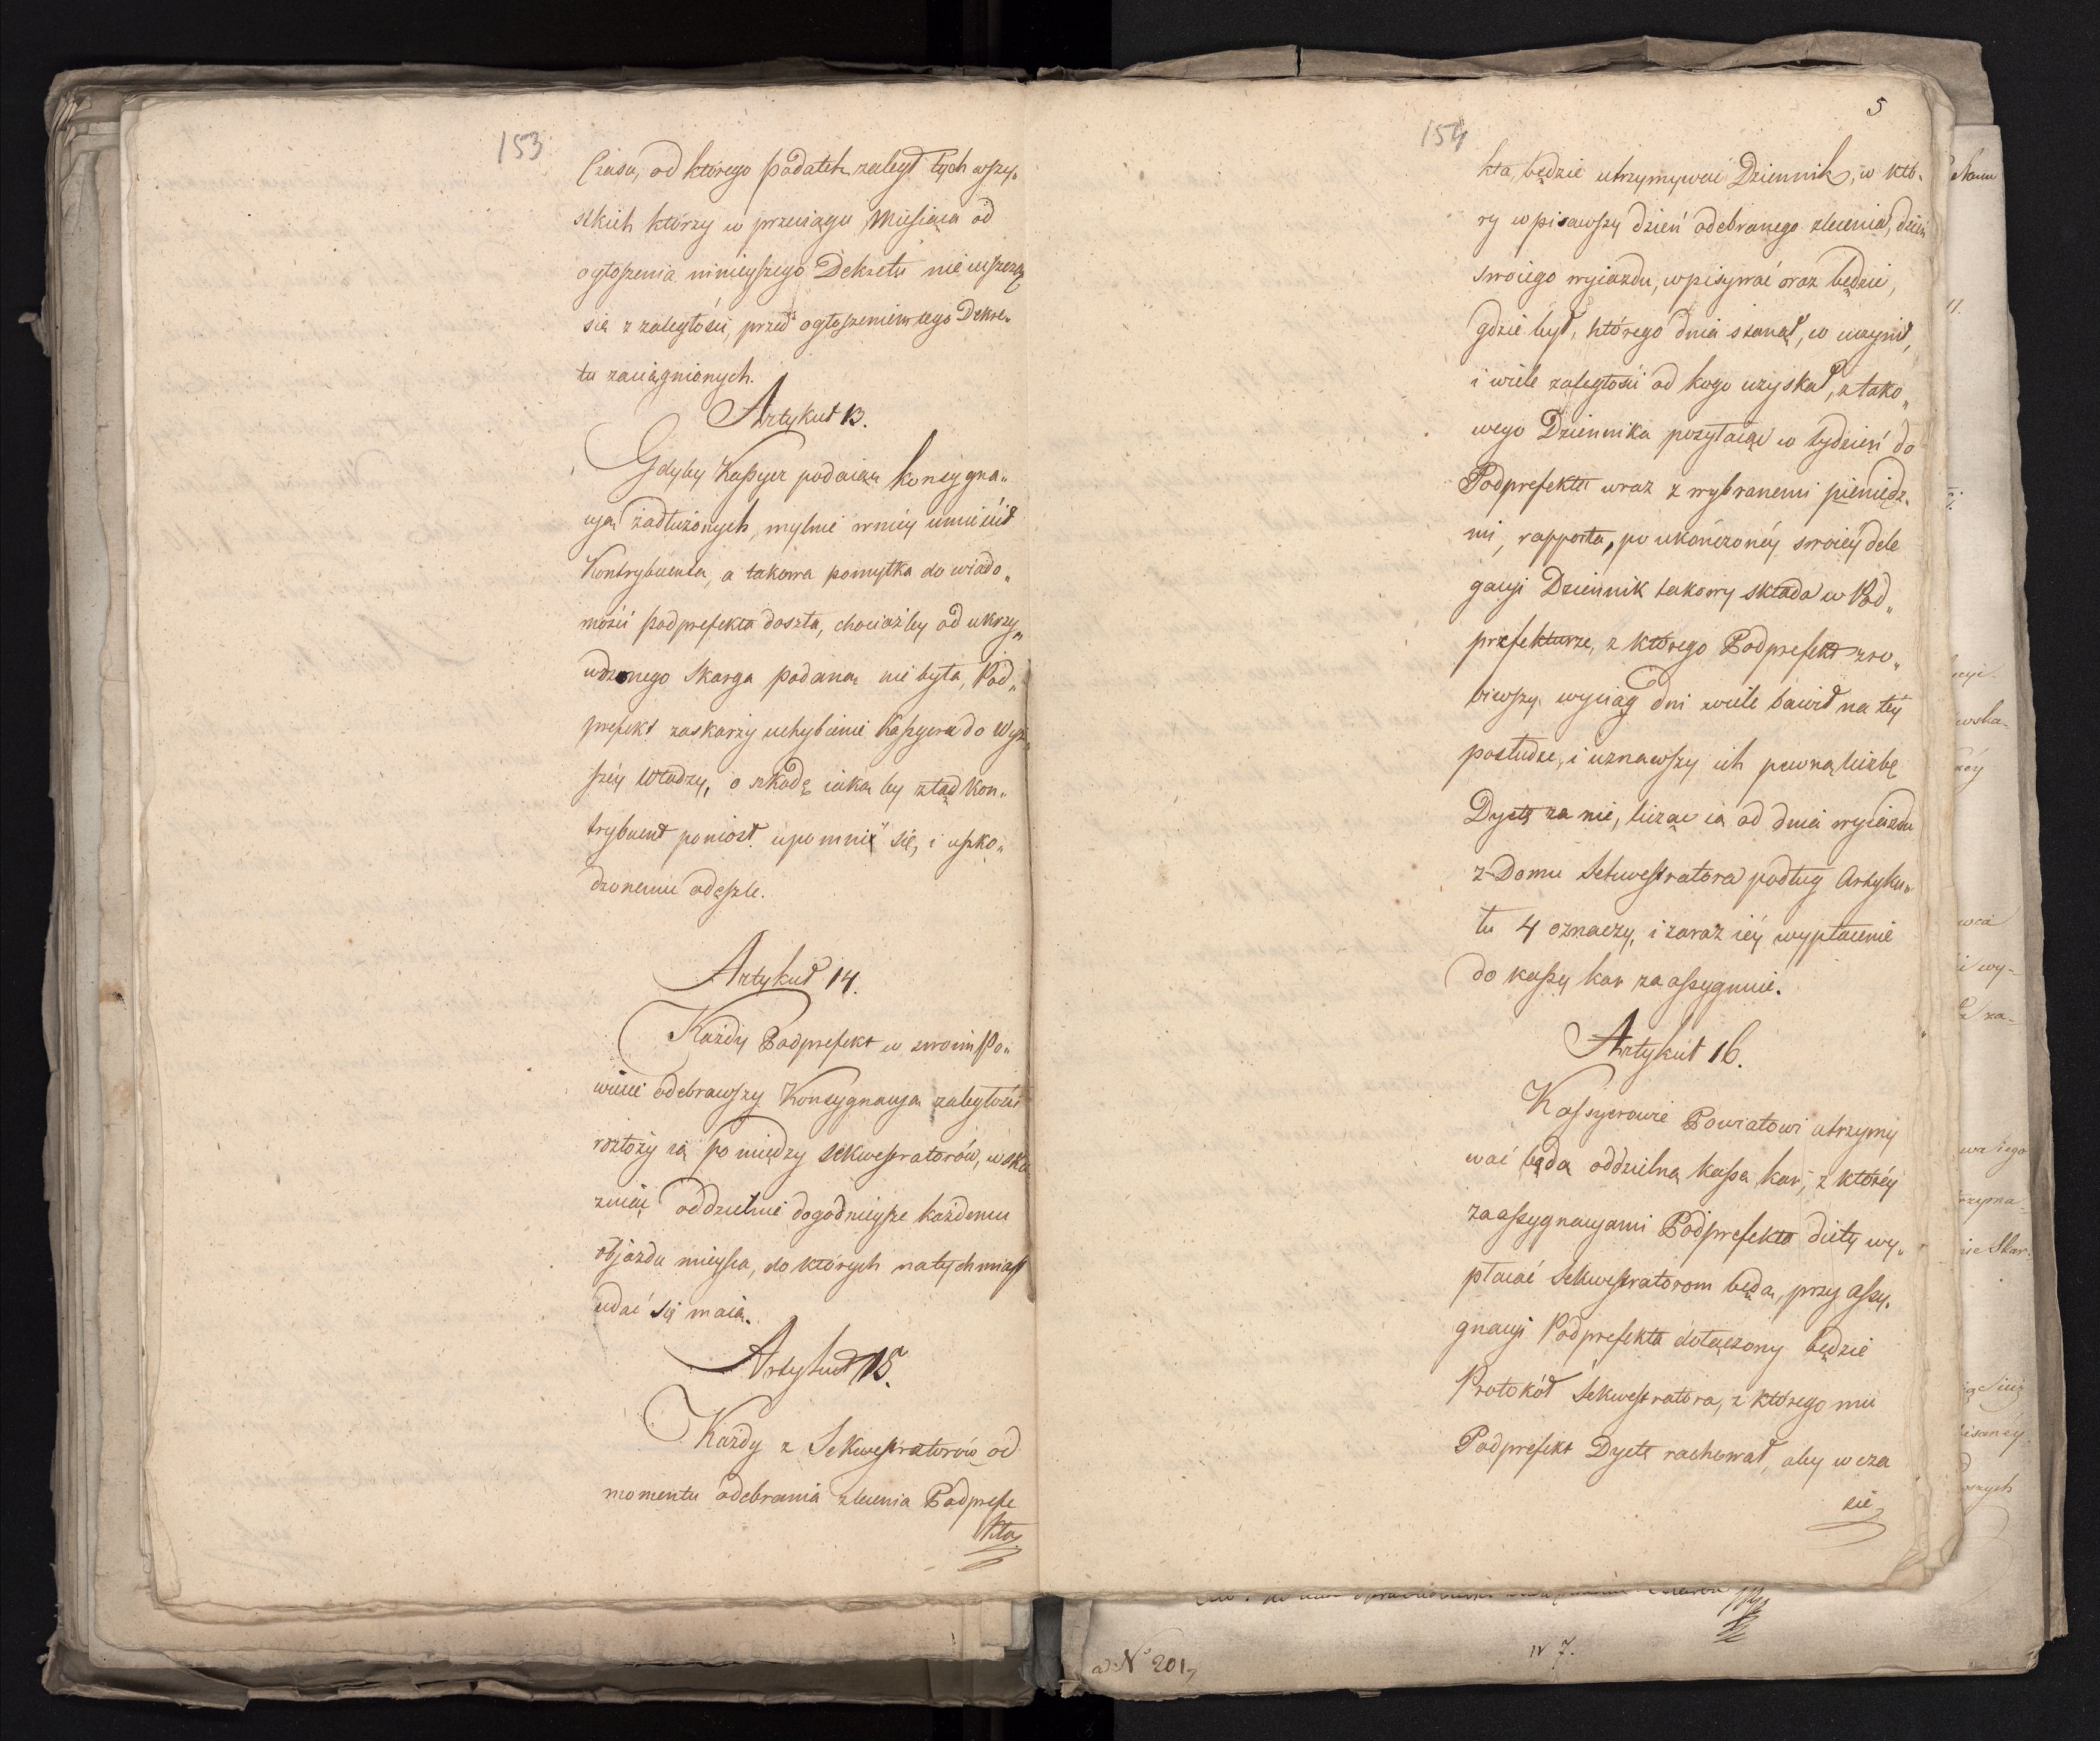 153
Czasu, od którego podatek zaległ tych wszy„
stkich którzy w przeciągu Miesiąca od
ogłoszenia ninieyszego Dekretu nie uiszczą
się z zaległości, przed ogłoszeniem tego Dekre„
tu zaciągnionych.
Artykuł 13.
Gdyby Kassyer podaiąc konsygna„
cyą zadłużonych, mylnie w niéy umieścił
Kontrybuenta, a takowa pomyłka do wiado„
mości podprefekta doszła, chociażby od ukrzy„
wdzonego skarga podana nie była, Pod„
prefekt zaskarży uchybienie Kassyera do Wyż„
széy Władzy, o szkodę iaką by ztąd kon„
trybuent poniósł upomni się, i uszko„
dzonemu odeszle.
Artykuł 14.
Każdy Podprefekt w swoim Po„
wiecie odebrawszy Konsygnacyą zaległości
rozłoży ią pomiędzy sekwestratorów, wska
zuiąc oddzielnie dogodnieysze każdemu
objazdu mieysca, do których natychmiast
udać się maią.
Artykuł 15.
Każdy z Sekwestratorów od
momentu odebrania zlecenia Podprefe
kta
154
5
kta, będzie utrzymywać Dziennik, w któ„
ry wpisawszy dzień odebranego zlecenia, dzień
swoiego wyiazdu, wpisywać oraz będzie,
gdzie był, którego dnia stanął, co uczynił,
i wiele zaległości od kogo uzyskał, z tako„
wego Dziennika posyłaiąc w tydzień do
Podprefekta wraz z wybranemi pieniędz„
mi, rapporta, po ukończonéy swoiéy dele
gacyi Dziennik takowy składa w Pod„
prefekturze, z którego Podprefekt zro„
biwszy wyciąg dni wiele bawił na téy
posłudze, i uznawszy ich pewną liczbę
Dyetę za nie, licząc ią od dnia wyiazdu
z Domu Sekwestratora podług Artyku„
łu 4 oznaczy, i zaraz iéy wypłacenie
do kassy kar zaassygnuie.
Artykuł 16.
Kassyerowie Powiatowi utrzymy
wać będą oddzielną kassę kar, z któréy
za assygnacyami Podprefekta diety wy„
płacać Sekwestratorom będą, przy assy„
gnacyi Podprefekta dołączony będzie
Protokół Sekwestratora, z którego mu
Podprefekt Dyetę rachował, aby w cza
sie
ad N° 201
N 7.